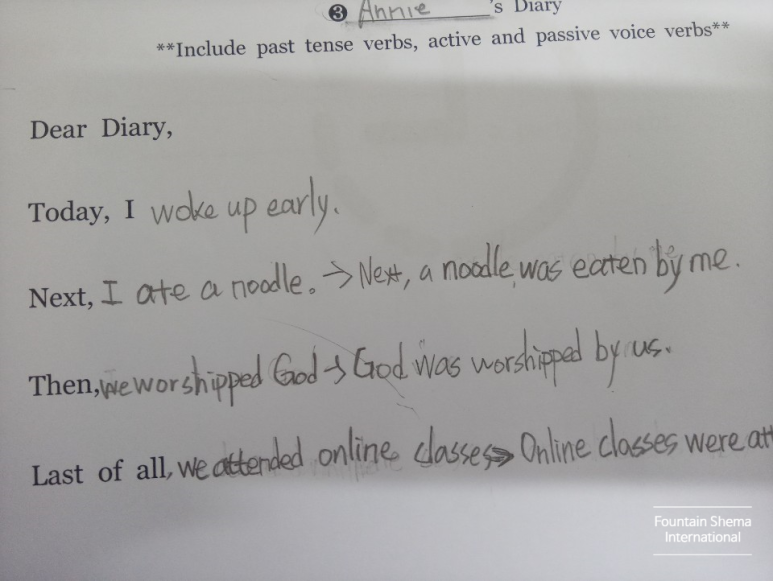 ❸ Annie 's Diary
**Include past tense verbs, active and passive voice verbs**
Dear Diary,
Today, I woke up early.
Next, I ate a noodle. → Next, a noodle was eaten by me.
Then, we worshipped God → God was worshipped by us.
Last of all, we attended online classes → Online classes were att
Fountain Shema
International